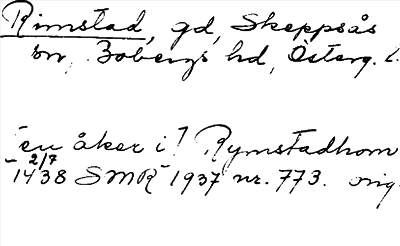 Rimstad, gd, Skeppsås
sn, Bobergs hd, Österg. l.
[en åker i] Rymstadhom
2/7
1438 SMR 1937 nr. 773. orig.